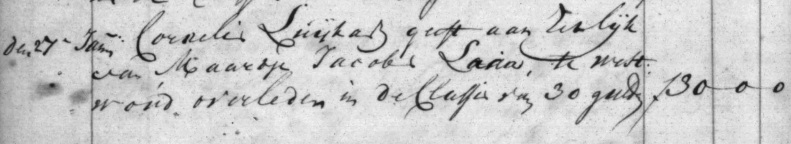 den 27e Janu Cornelis Luijkas geeft aan Een lijk
van Maartje Jacobs te west
woud overleden in de Classis van 30 guld f30 0 0